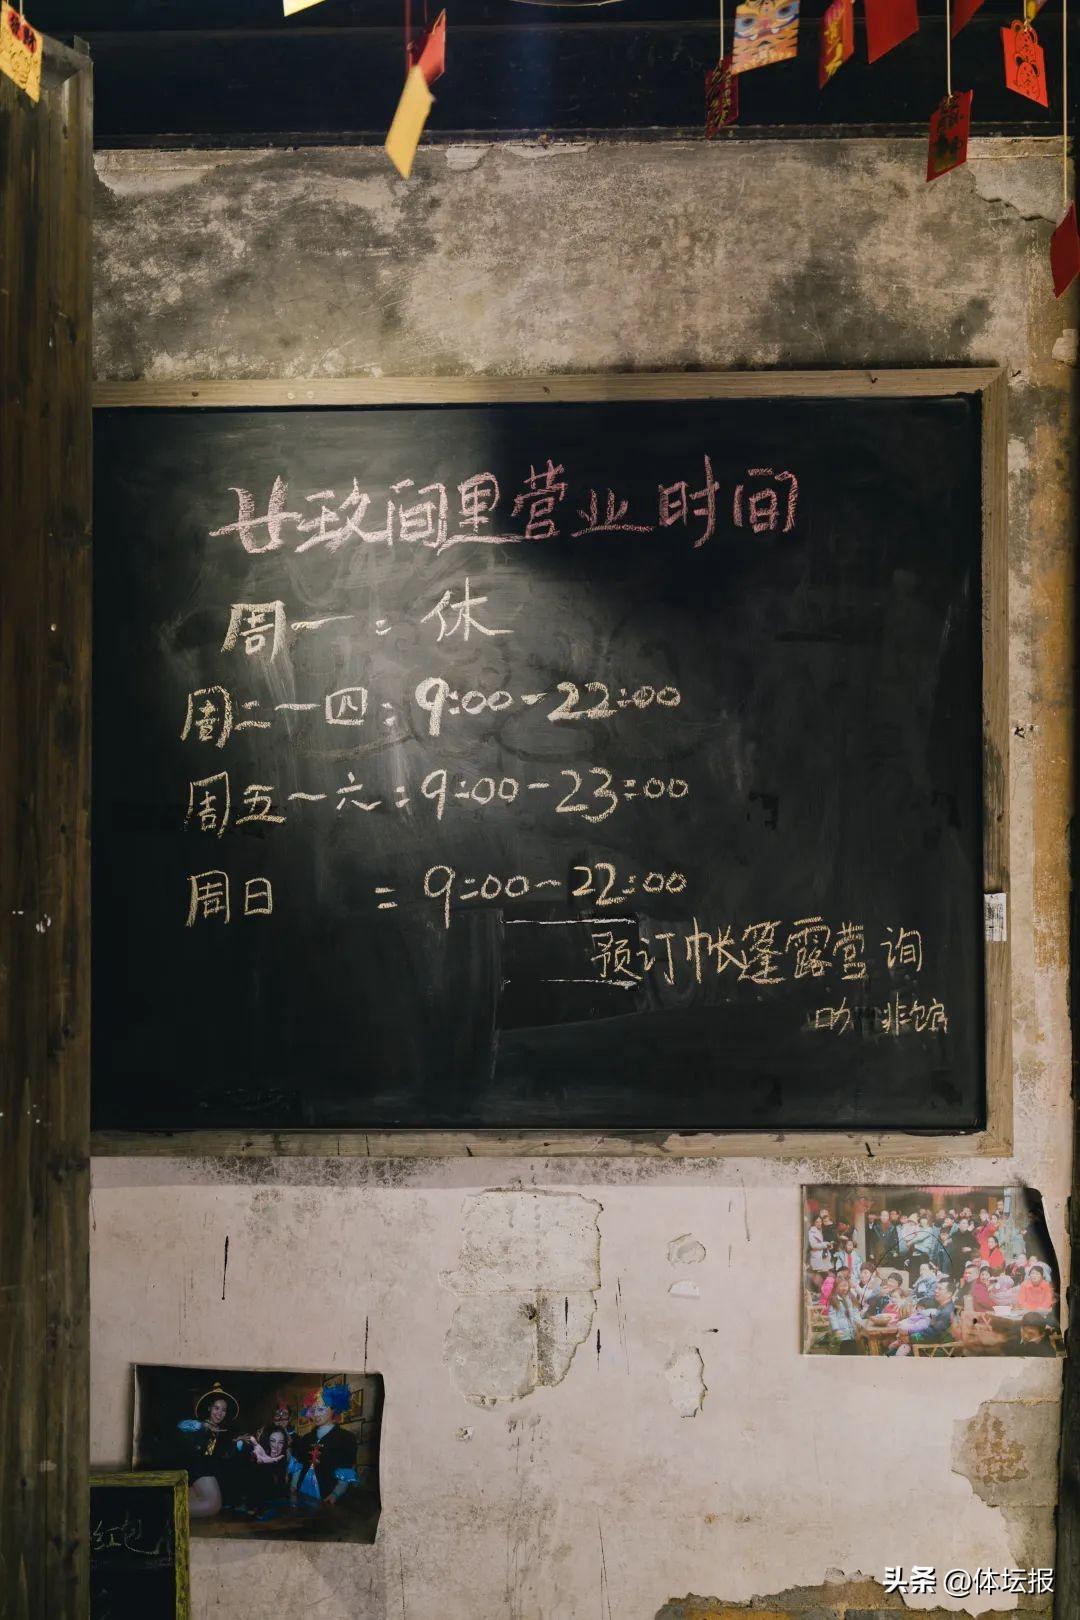 廿玖间里营业时间
周一：休
周二一四：9:00-22:00
周五一六：9:00-23:00
周日：9:00-22:00
预订帐篷露营 询
咖啡馆
红包
头条 @体坛报